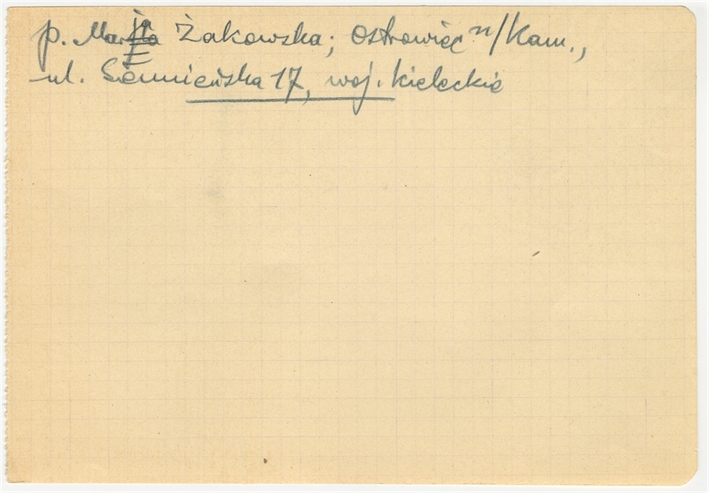 p. Maria Żakowska; Ostrowiec n/Kam.,
ul. Siennieńska 17, woj. kieleckie